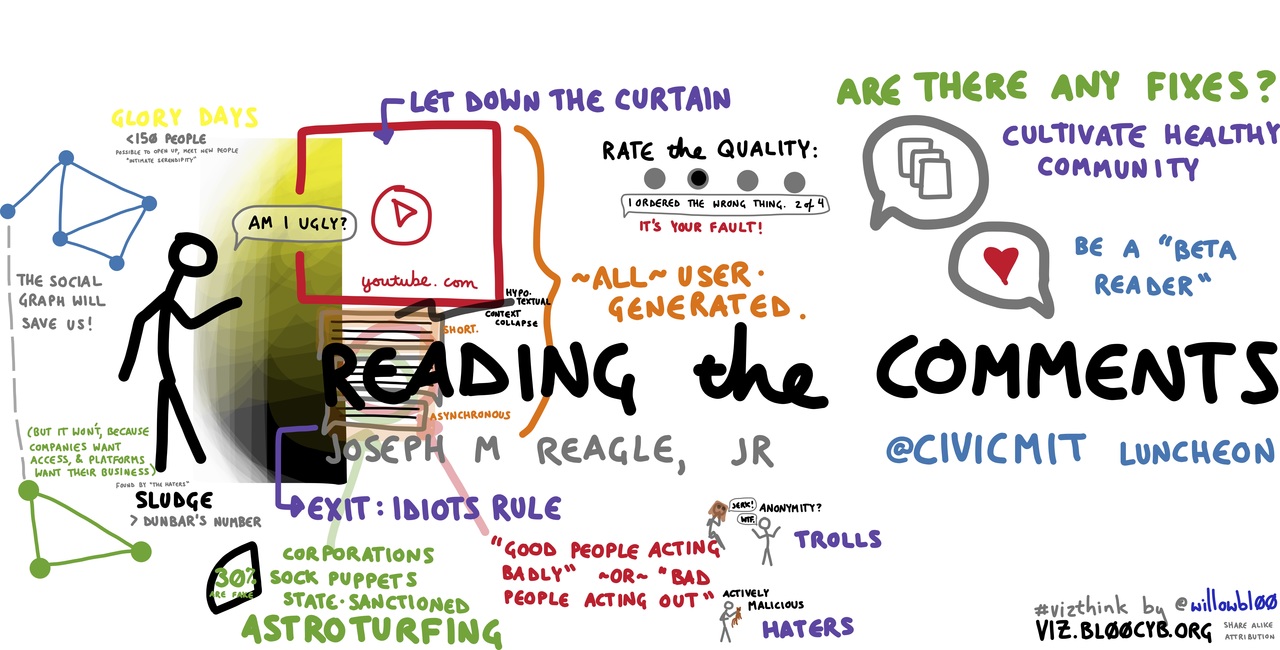 GLORY DAYS
<150 PEOPLE
POSSIBLE TO OPEN UP, MEET NEW PEOPLE
"INTIMATE SERENDIPITY"
THE SOCIAL
GRAPH WILL
SAVE US!
(BUT IT WON'T, BECAUSE
COMPANIES WANT
ACCESS, & PLATFORMS
WANT THEIR BUSINESS)
FOUND BY "THE HATERS"
SLUDGE
> DUNBAR'S NUMBER
AM I UGLY?
LET DOWN THE CURTAIN
youtube.com
HYPO-
TEXTUAL
CONTEXT
COLLAPSE
SHORT.
ASYNCHRONOUS
~ALL~ USER-
GENERATED.
RATE the QUALITY:
I ORDERED THE WRONG THING. 2 of 4
IT'S YOUR FAULT!
ARE THERE ANY FIXES?
CULTIVATE HEALTHY
COMMUNITY
BE A "BETA
READER"
READING the COMMENTS
JOSEPH M REAGLE, JR
@CIVICMIT LUNCHEON
EXIT: IDIOTS RULE
30%
ARE FAKE
CORPORATIONS
SOCK PUPPETS
STATE-SANCTIONED
ASTROTURFING
"GOOD PEOPLE ACTING
BADLY" ~OR~ "BAD
PEOPLE ACTING OUT"
JERK!
WTF.
ANONYMITY?
TROLLS
ACTIVELY
MALICIOUS
HATERS
#vizthink by @willowbl00
VIZ.BL00CYB.ORG
SHARE ALIKE
ATTRIBUTION